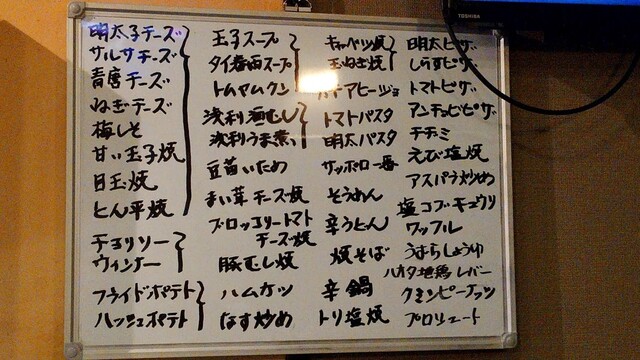 TOSHIBA
明太子チーズ
サルサチーズ
青唐チーズ
ねぎチーズ
梅しそ
甘い玉子焼
目玉焼
とん平焼
チョリソー
ウィンナー
フライドポテト
ハッシュポテト
玉子スープ
タイ春雨スープ
トムヤムクン
浅利酒むし
浅利うま煮
豆苗いため
まい茸チーズ焼
ブロッコリートマト
チーズ焼
豚むし焼
ハムカツ
なす炒め
キャベツ焼
玉ねぎ焼
アヒージョ
トマトパスタ
明太パスタ
サッポロ一番
そうめん
辛うどん
焼そば
辛鍋
トリ塩焼
明太ピザ
しらすピザ
トマトピザ
アンチョビピザ
チヂミ
えび塩焼
アスパラ炒め
塩コブキュウリ
ワッフル
うずらしょうゆ
ハカタ地鶏レバー
クミンピーナッツ
プロシュート